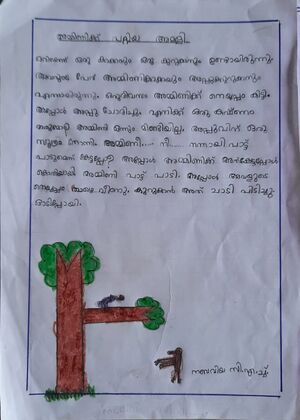 അമ്മിണിക്ക് പറ്റിയ അമളി
ഒരിടത്ത് ഒരു കാക്കയും ഒരു കുറുക്കനും ഉണ്ടായിരുന്നു.
അവരുടെ പേര് അമ്മിണികാക്കയും അപ്പുകുറുക്കനും
എന്നായിരുന്നു. ഒരുദിവസം അമ്മിണിക്ക് നെയ്യപ്പം കിട്ടി.
അപ്പോൾ അപ്പു ചോദിച്ചു എനിക്ക് ഒരു കഷ്ണം
തരുമോ അമ്മിണി ഒന്നും മിണ്ടിയില്ല. അപ്പുവിന് ഒരു
സൂത്രം തോന്നി. അമ്മിണീ.... നീ..... നന്നായി പാട്ട്
പാടുമെന്ന് കേട്ടല്ലോ അപ്പോൾ അമ്മിണിക്ക് അത്കേട്ടപ്പോൾ
അമ്മിണി പാട്ട് പാടി. അപ്പോൾ അവളുടെ
നെയ്യപ്പം താഴെ വീണു. കുറുക്കൻ അത് ചാടി പിടിച്ചു
ഓടിപ്പോയി.
നജവിയ സി.എച്ച്